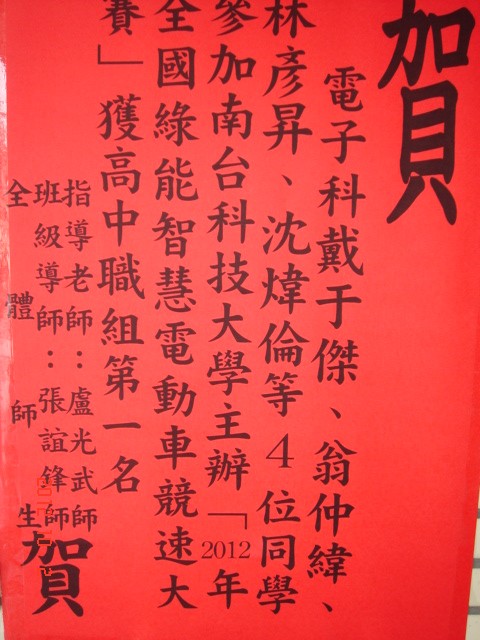 賀
電子科戴于傑、翁仲緯、
林彥昇、沈煒倫等4位同學
參加南台科技大學主辦「2012年
全國綠能智慧電動車競速大
賽」獲高中職組第一名
指導老師：盧光武師
班級導師：張誼鋒師
全體師生
賀